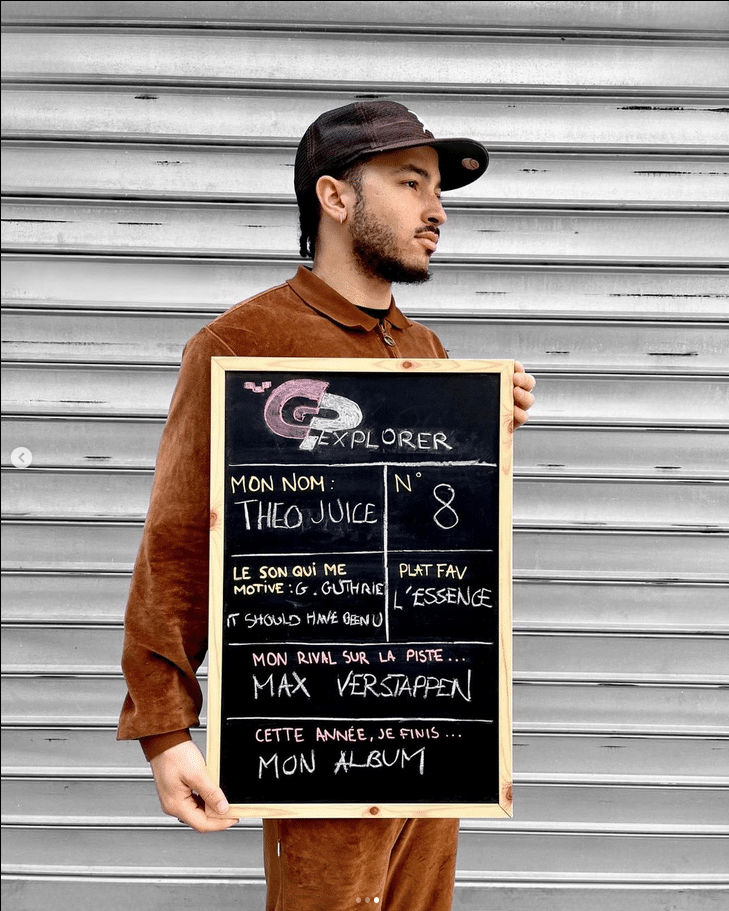 GP
EXPLORER
MON NOM :
THEO JUICE
N°
8
LE SON QUI ME
MOTIVE : G. GUTHRIE
IT SHOULD HAVE BEEN U
PLAT FAV
L'ESSENCE
MON RIVAL SUR LA PISTE...
MAX VERSTAPPEN
CETTE ANNÉE, JE FINIS ...
MON ALBUM